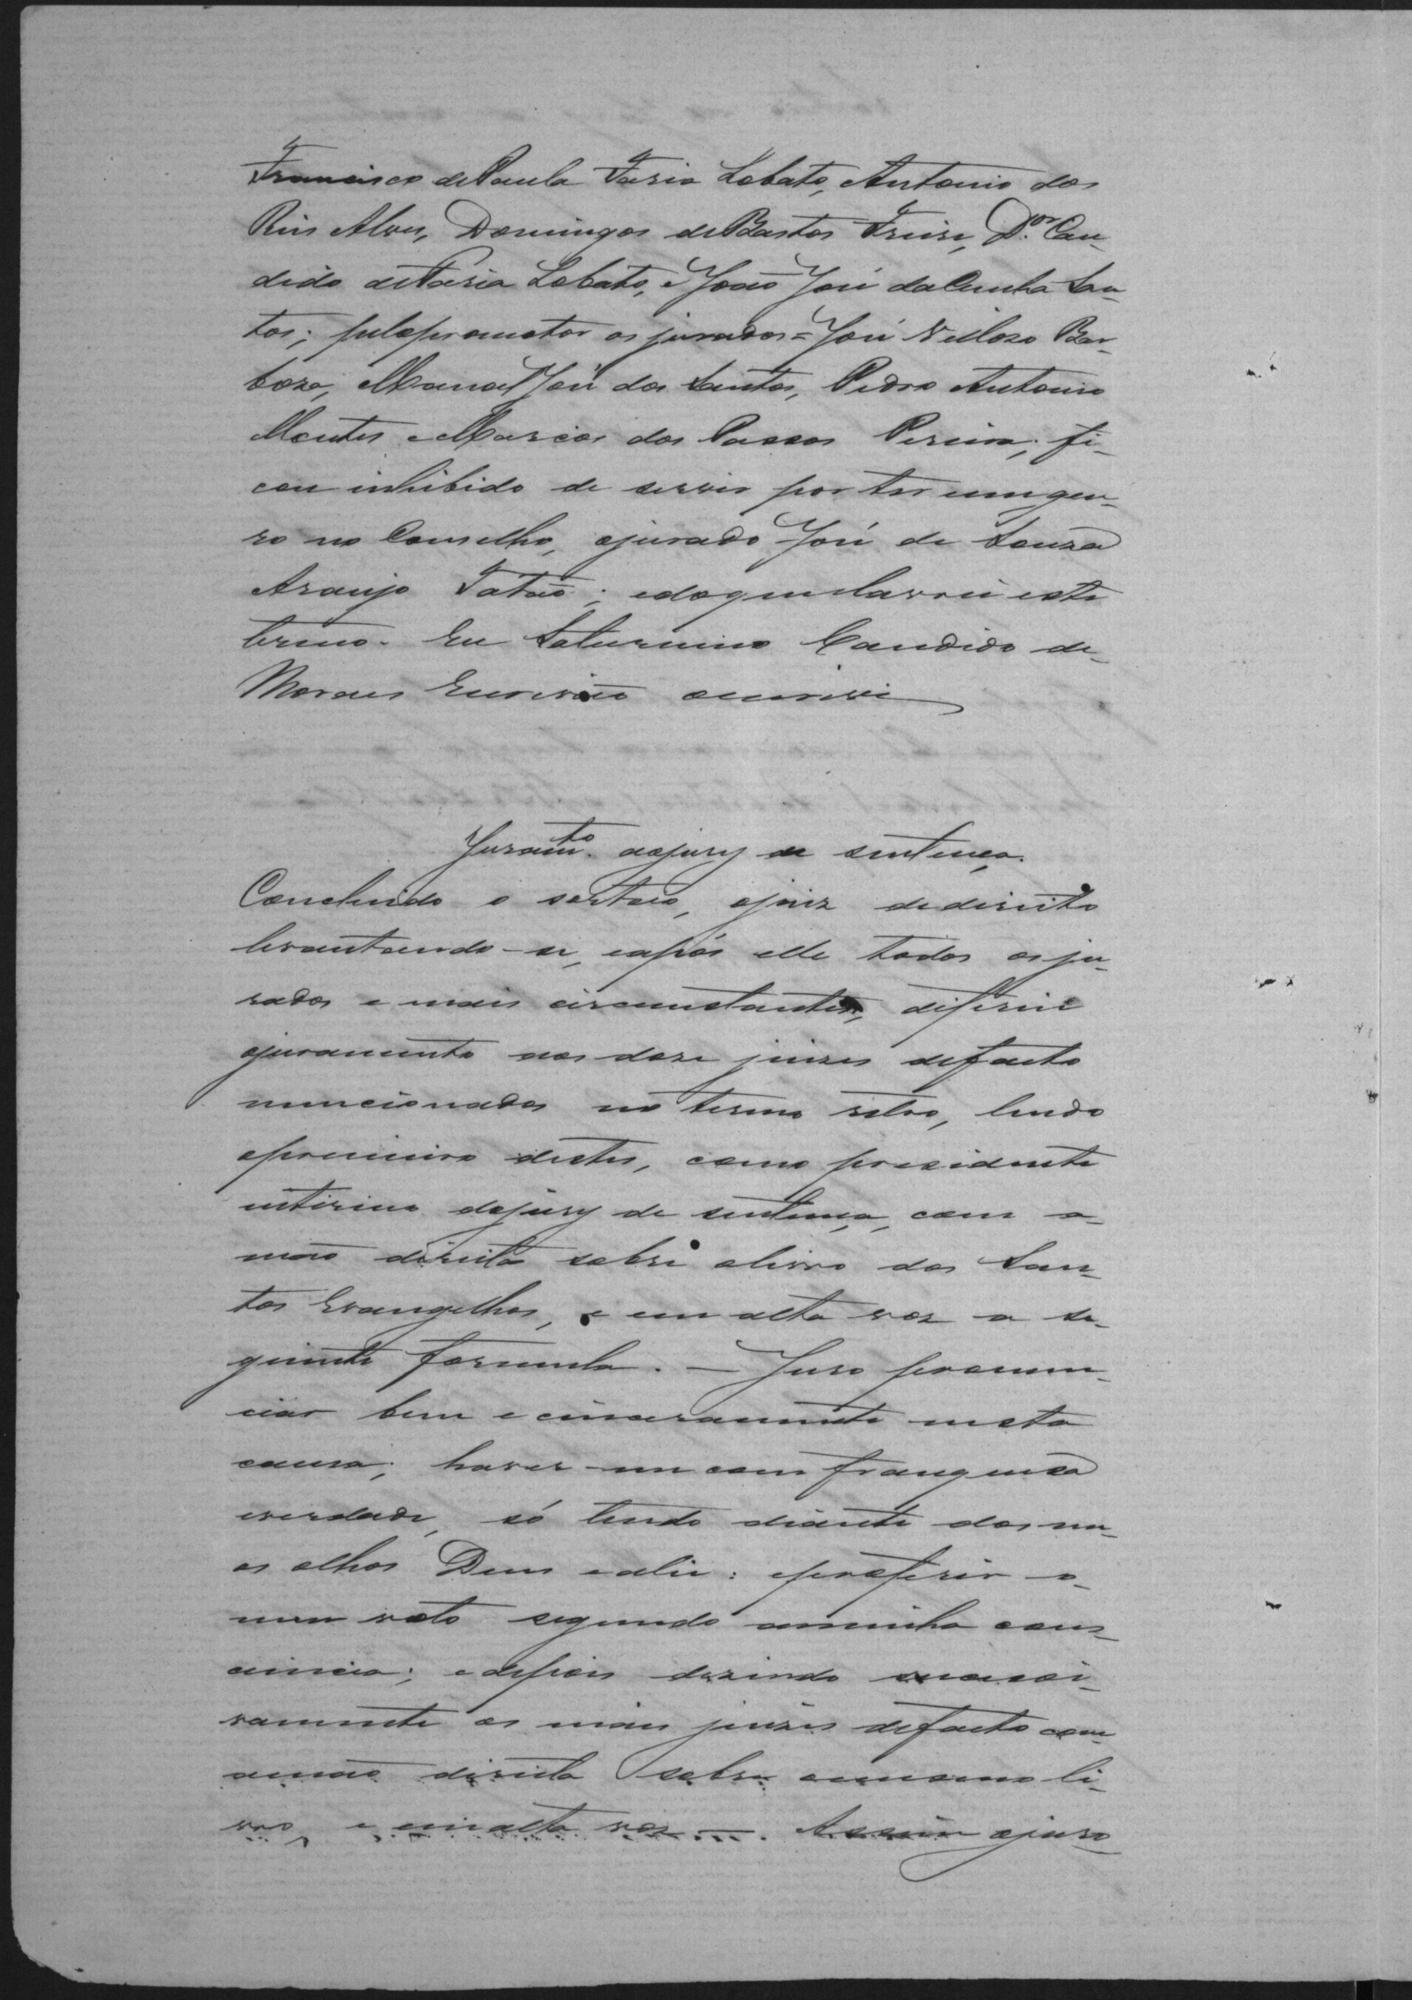 Francisco de Paula Faria Lobato, Antonio dos
Reis Alves, Domingos de Bastos Freire, Dor. Can-
dido de Faria Lobato, e João José da Cunha San-
tos; pelo promotor os jurados = José Velloso Bar-
boza, Manoel José dos Santos, Pedro Antonio
Montes e Marcos dos Passos Pereira; fi-
cou inhibido de servir por ter um gen-
ro no Conselho, o jurado José de Souza
Araujo Tatão; e do que lavrei este
termo. Eu Saturnino Candido de
Moraes Escrivão o escrevi
Juramto. ao jury de sentença.
Concluido o sorteio, o juiz de direito
levantando-se, e após elle todos os ju-
rados e mais circumstantes, deferio
o juramento aos doze juizes de facto
mencionados no termo retro, lendo
o primeiro destes, como presidente
interino do jury de sentença, com a
mão direita sobre o livro dos San-
tos Evangelhos, e em alta voz a se-
guinte formula. — Juro pronun-
ciar bem e cinceramente nesta
causa; haver-me com franqueza
e verdade, só tendo diante dos me-
os olhos Deus e a lei: e proferir o
meu voto segundo a minha cons-
ciencia; e depois dizendo successi-
vamente os mais juizes de facto com
a mão direita sobre o mesmo li-
vro, e em alta voz —. Assim o juro